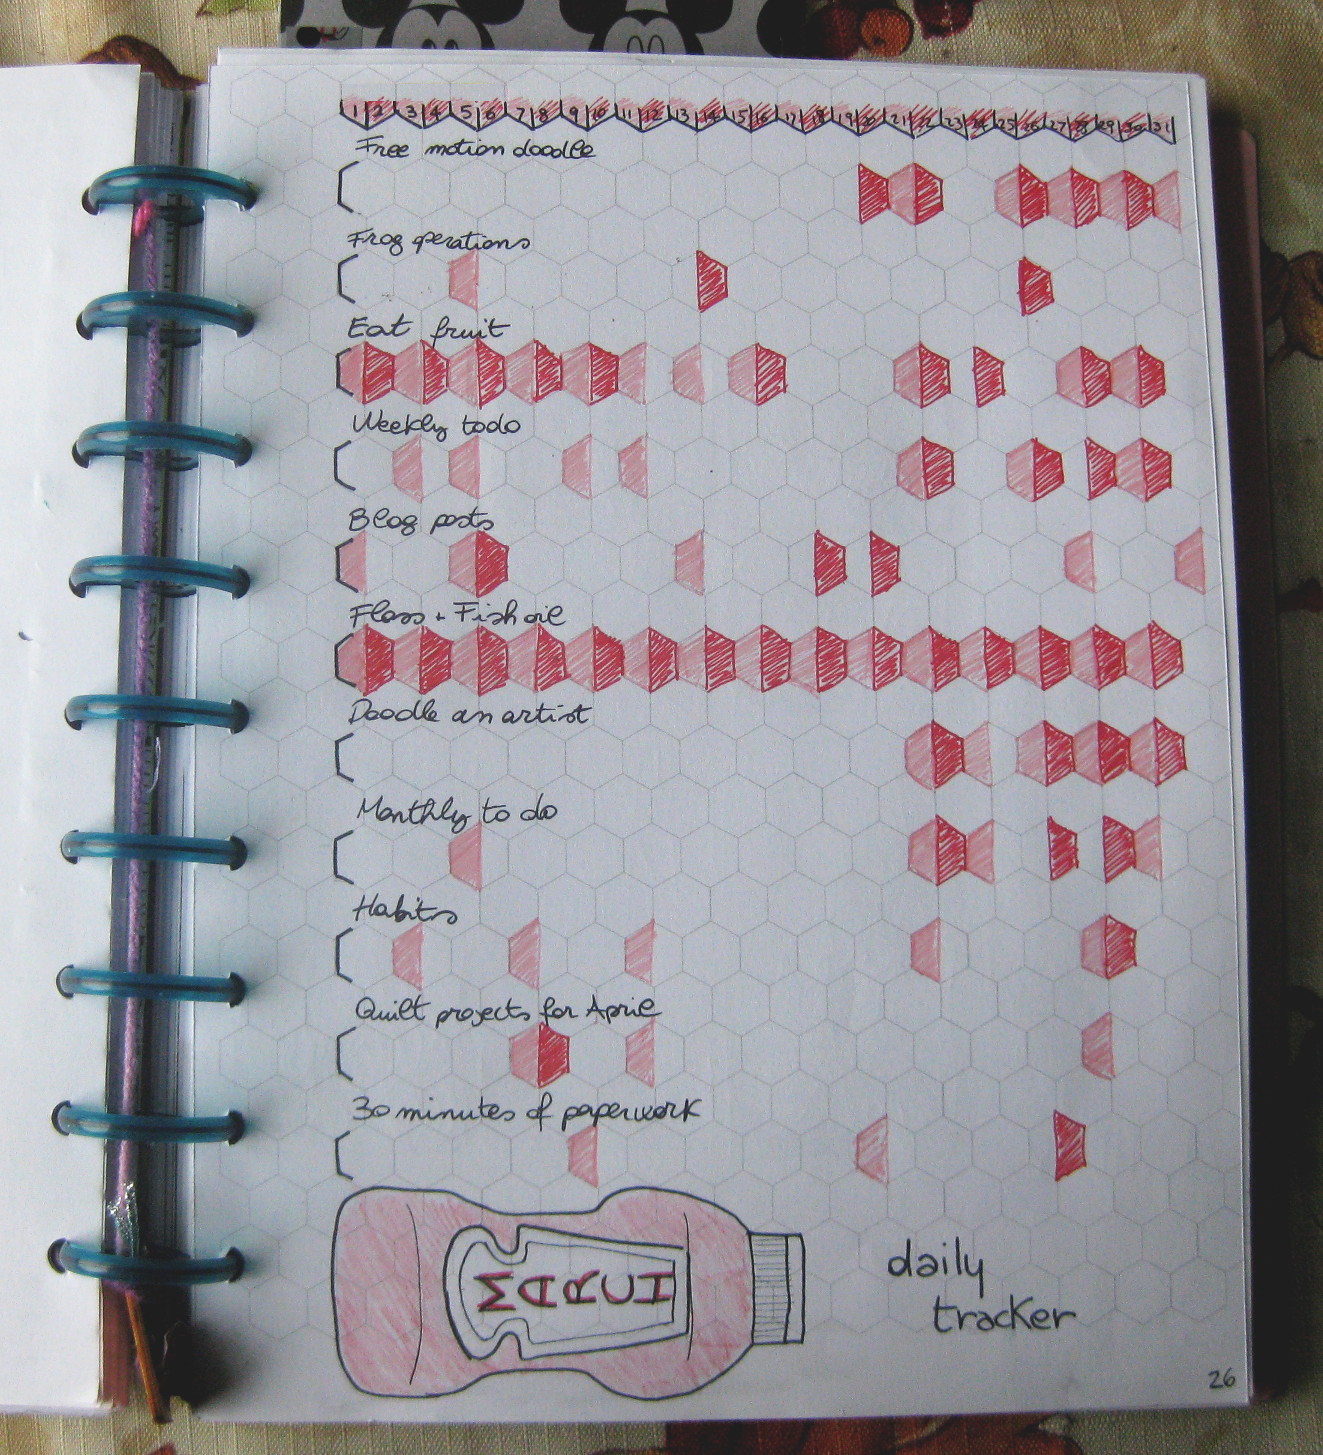 1 2 3 4 5 6 7 8 9 10 11 12 13 14 15 16 17 18 19 20 21 22 23 24 25 26 27 28 29 30 31
Free motion doodle
Frog operations
Eat fruit
Weekly todo
Blog posts
Floss + Fish oil
Doodle an artist
Monthly to do
Habits
Quilt projects for April
30 minutes of paperwork
MARCH
daily
tracker
26